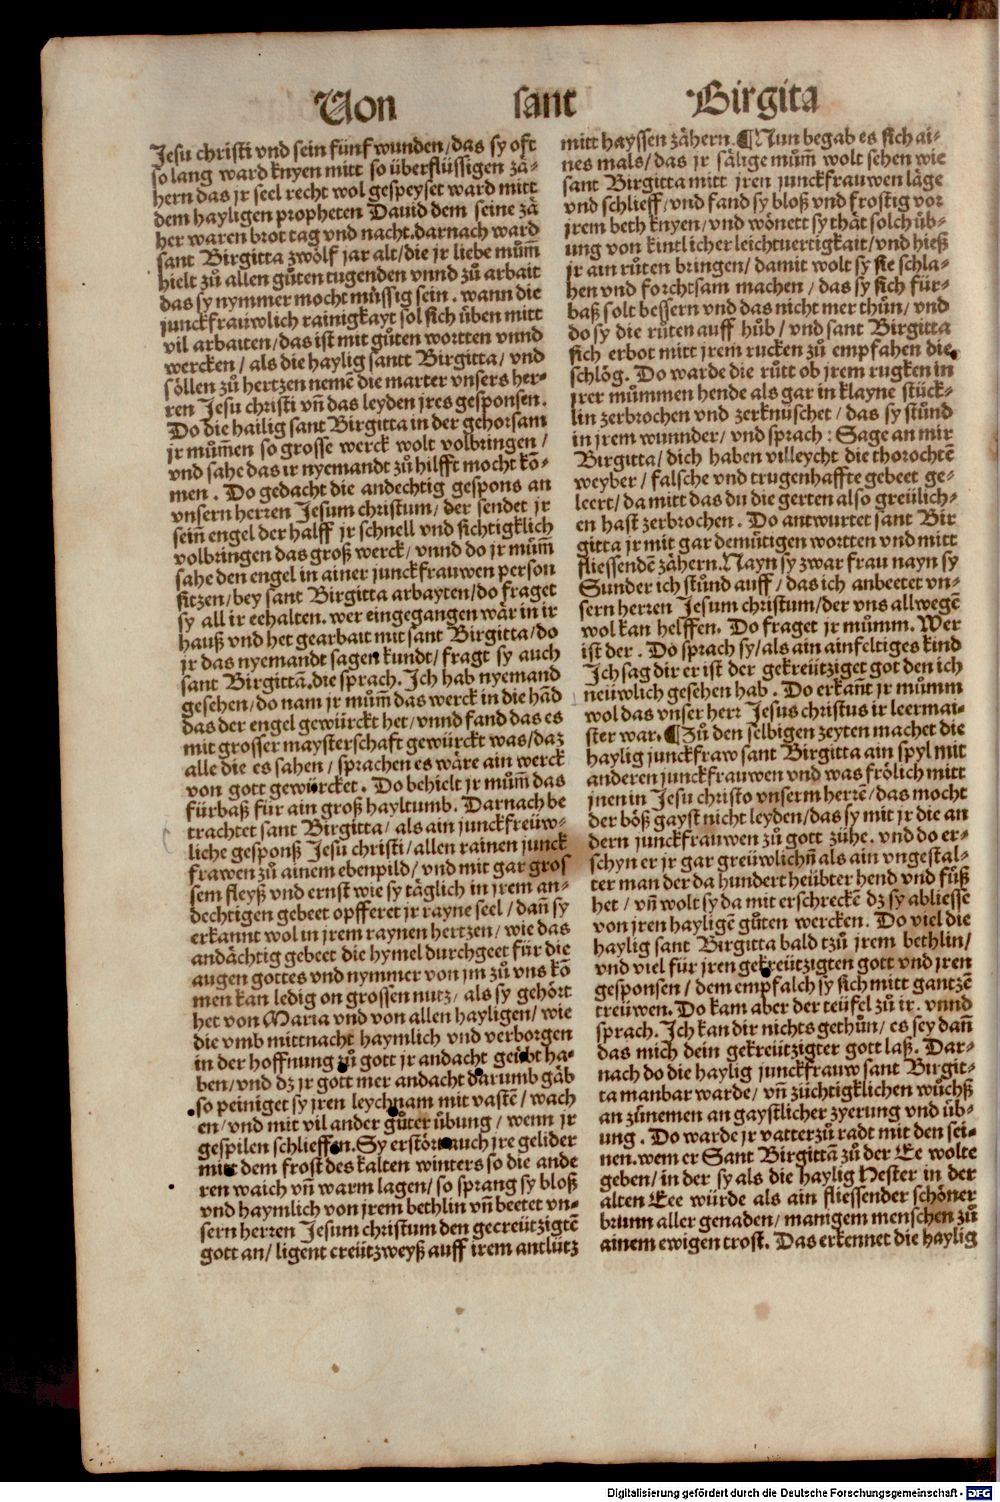 Von sant Birgita
Jesu christi vnd sein fünf wunden/das sy oft
so lang ward knyen mitt so überflüssigen zä-
hern das jr seel recht wol gespeyset ward mitt
dem hayligen propheten Dauid dem seine zä
her waren brot tag vnd nacht.darnach ward
sant Birgitta zwölf jar alt/die jr liebe mům̄
hielt zů allen gůten tugenden vnnd zů arbait
das sy nymmer mocht müssig sein. wann die
junckfrauwlich rainigkayt sol sich üben mitt
vil arbaiten/das ist mit gůten wortten vnnd
wercken/ als die haylig santt Birgitta/ vnd
söllen zů hertzen nemē die marter vnsers her-
ren Jesu christi vn̄ das leyden jres gesponsen.
Do die hailig sant Birgitta in der gehorsam
jr můmen so grosse werck wolt volbringen/
vnd sahe das ir nyemandt zů hilfft mocht kō-
men. Do gedacht die andechtig gespons an
vnsern herren Jesum christum/ der sendet jr
sein̄ engel der halff jr schnell vnd sichtigklich
volbringen das groß werck/ vnnd do jr mům̄
sahe den engel in ainer junckfrauwen person
sitzen/bey sant Birgitta arbayten/do fraget
sy all ir eehalten. wer eingegangen wär in ir
hauß vnd het gearbait mit sant Birgitta/do
jr das nyemandt sagen kundt/ fragt sy auch
sant Birgittā.die sprach. Ich hab nyemand
gesehen/do nam jr mům̄ das werck in die hād
das der engel gewürckt het/vnnd fand das es
mit grosser maysterschaft gewürckt was/daz
alle die es sahen/ sprachen es wäre ain werck
von gott gewürcket. Do behielt jr mům̄ das
fürbaß für ain groß hayltumb. Darnach be
trachtet sant Birgitta/ als ain junckfreüw-
liche gesponß Jesu christi/allen rainen junck
frawen zů ainem ebenpild/vnd mit gar gros
sem fleyß vnd ernst wie sy täglich in jrem an-
dechtigen gebeet opfferet jr rayne seel/dan̄ sy
erkannt wol in jrem raynen hertzen/ wie das
andächtig gebeet die hymel durchgeet für die
augen gottes vnd nymmer von jm zů vns kō
men kan ledig on grossen nutz/ als sy gehört
het von Maria vnd von allen hayligen/wie
die vmb mittnacht haymlich vnd verborgen
in der hoffnung zů gott jr andacht geübt ha-
ben/vnd dz jr gott mer andacht darumb gäb
so peiniget sy jren leychnam mit vastē/ wach
en/vnd mit vil ander gůter übung/ wenn jr
gespilen schlieffen. Sy erstört auch jre gelider
mitt dem frost des kalten winters so die ande
ren waich vn̄ warm lagen/ so sprang sy bloß
vnd haymlich von jrem bethlin vn̄ beetet vn-
sern herren Jesum christum den gecreützigtē
gott an/ ligent creützweyß auff irem antlütz
mitt hayssen zähern. ¶Nun begab es sich ai-
nes mals/das jr sälige mům̄ wolt sehen wie
sant Birgitta mitt jren junckfrauwen läge
vnd schlieff/vnd fand sy bloß vnd frostig vor
jrem beth knyen/vnd wönett sy thät solch üb-
ung von kintlicher leichtuertigkait/vnd hieß
jr ain růten bringen/ damit wolt sy sie schla-
hen vnd forchtsam machen/das sy sich für-
baß solt bessern vnd das nicht mer thůn/ vnd
do sy die růten auff hůb/ vnd sant Birgitta
sich erbot mitt jrem rucken zů empfahen die
schlög. Do warde die růtt ob jrem rugken in
jrer můmmen hende als gar in klayne stück-
lin zerbrochen vnd zerknüschet/das sy stůnd
in jrem wunnder/ vnd sprach: Sage an mir
Birgitta/dich haben villeycht die thorochtē
weyber/ falsche vnd trugenhaffte gebeet ge-
leert/damitt das du die gerten also greülich-
en hast zerbrochen. Do antwurtet sant Bir
gitta jr mit gar demütigen wortten vnd mitt
fliessendē zähern.Nayn sy zwar frau nayn sy
Sunder ich stůnd auff/das ich anbeetet vn-
sern herren Jesum christum/der vns allwegē
wol kan helffen. Do fraget jr můmm. Wer
ist der. Do sprach sy/als ain ainfeltiges kind
Ich sag dir er ist der gekreütziget got den ich
neüwlich gesehen hab. Do erkan̄t jr můmm
wol das vnser herr Jesus christus ir leermai-
ster war. ¶Zů den selbigen zeyten machet die
haylig junckfraw sant Birgitta ain spyl mit
anderen junckfrauwen vnd was frölich mitt
jnen in Jesu christo vnserm herrē/das mocht
der böß gayst nicht leyden/das sy mit jr die an
dern junckfrauwen zů gott zühe. vnd do er-
schyn er jr gar greüwlichn̄ als ain vngestal-
ter man der da hundert heübter hend vnd füß
het/ vn̄ wolt sy da mit erschreckē dz sy abliesse
von jren hayligē gůten wercken. Do viel die
haylig sant Birgitta bald tzů jrem bethlin/
vnd viel für jren gekreützigten gott vnd jren
gesponsen/dem empfalch sy sich mitt gantzē
treüwen. Do kam aber der teüfel zů ir. vnnd
sprach. Ich kan dir nichts gethůn/es sey dan̄
das mich dein gekreützigter gott laß. Dar-
nach do die haylig junckfraw sant Birgit-
ta manbar warde/ vn̄ züchtigklichen wůchß
an zůnemen an gaystlicher zyerung vnd üb-
ung. Do warde jr vatter zů radt mit den sei-
nen.wem er Sant Birgittā zů der Ee wolte
geben/in der sy als die haylig Hester in der
alten Eee würde als ain fliessender schöner
brunn aller genaden/manigem menschen zů
ainem ewigen trost. Das erkennet die haylig
Digitalisierung gefördert durch die Deutsche Forschungsgemeinschaft - DFG